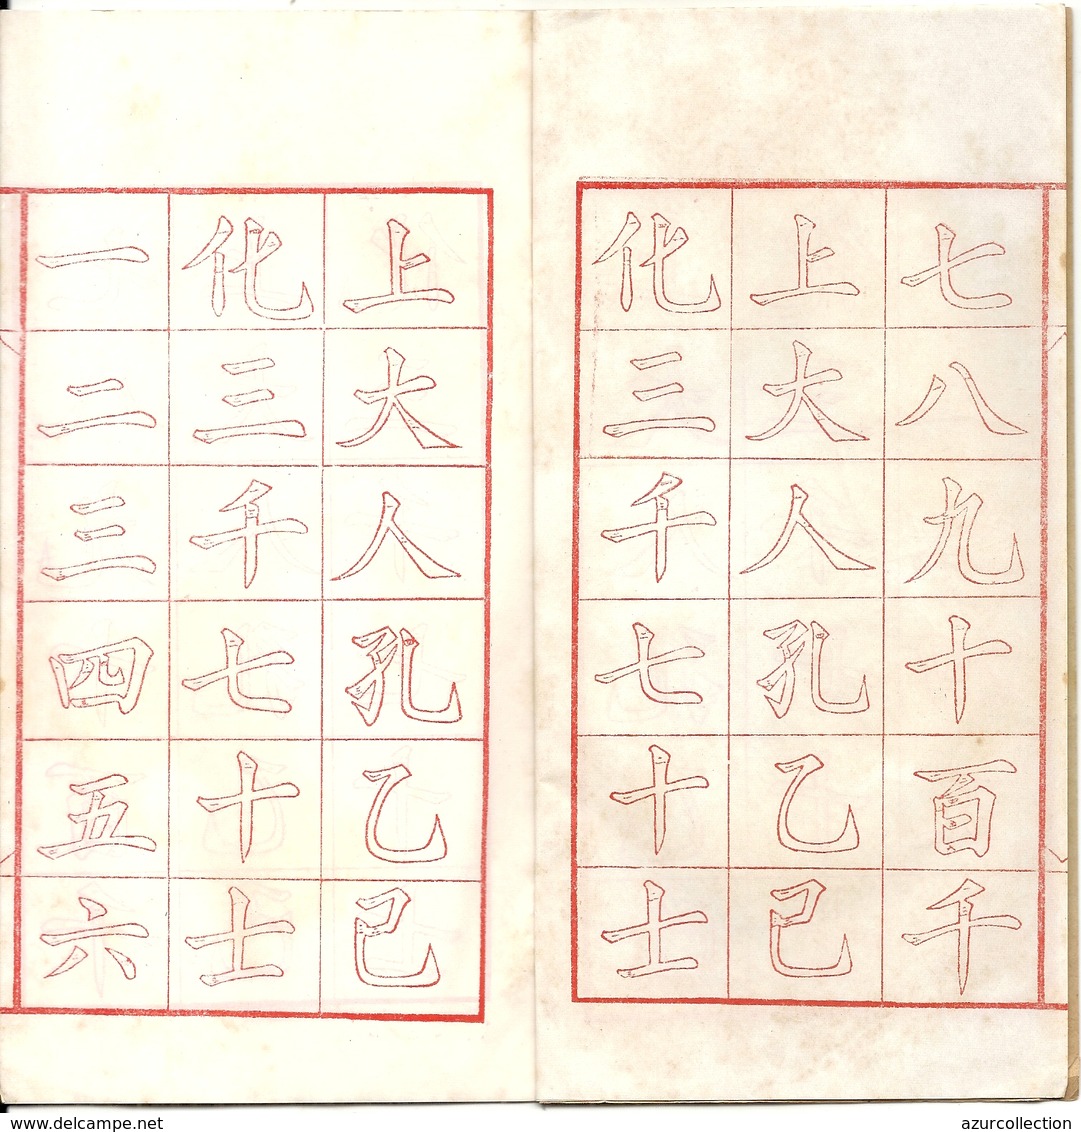 七八九十百千
上大人孔乙己
化三千七十士
上大人孔乙己
化三千七十士
一二三四五六
www.delcampe.net
azurcollection